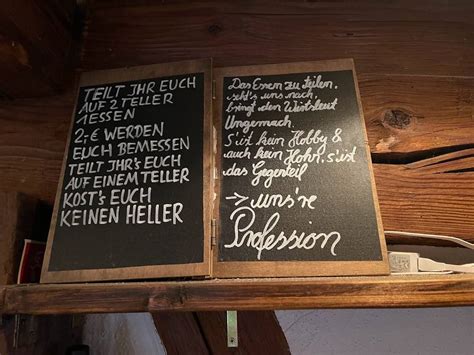 TEILT IHR EUCH
AUF 2 TELLER
1 ESSEN
2.-€ WERDEN
EUCH BEMESSEN
TEILT IHR's EUCH
AUF EINEM TELLER
KOST's EUCH
KEINEN HELLER
Das Essen zu teilen,
seht's uns nach,
bringt den Wirtsleut
Ungemach.
S'ist kein Hobby &
auch kein Hohn, s'ist
das Gegenteil
→ uns're
Profession